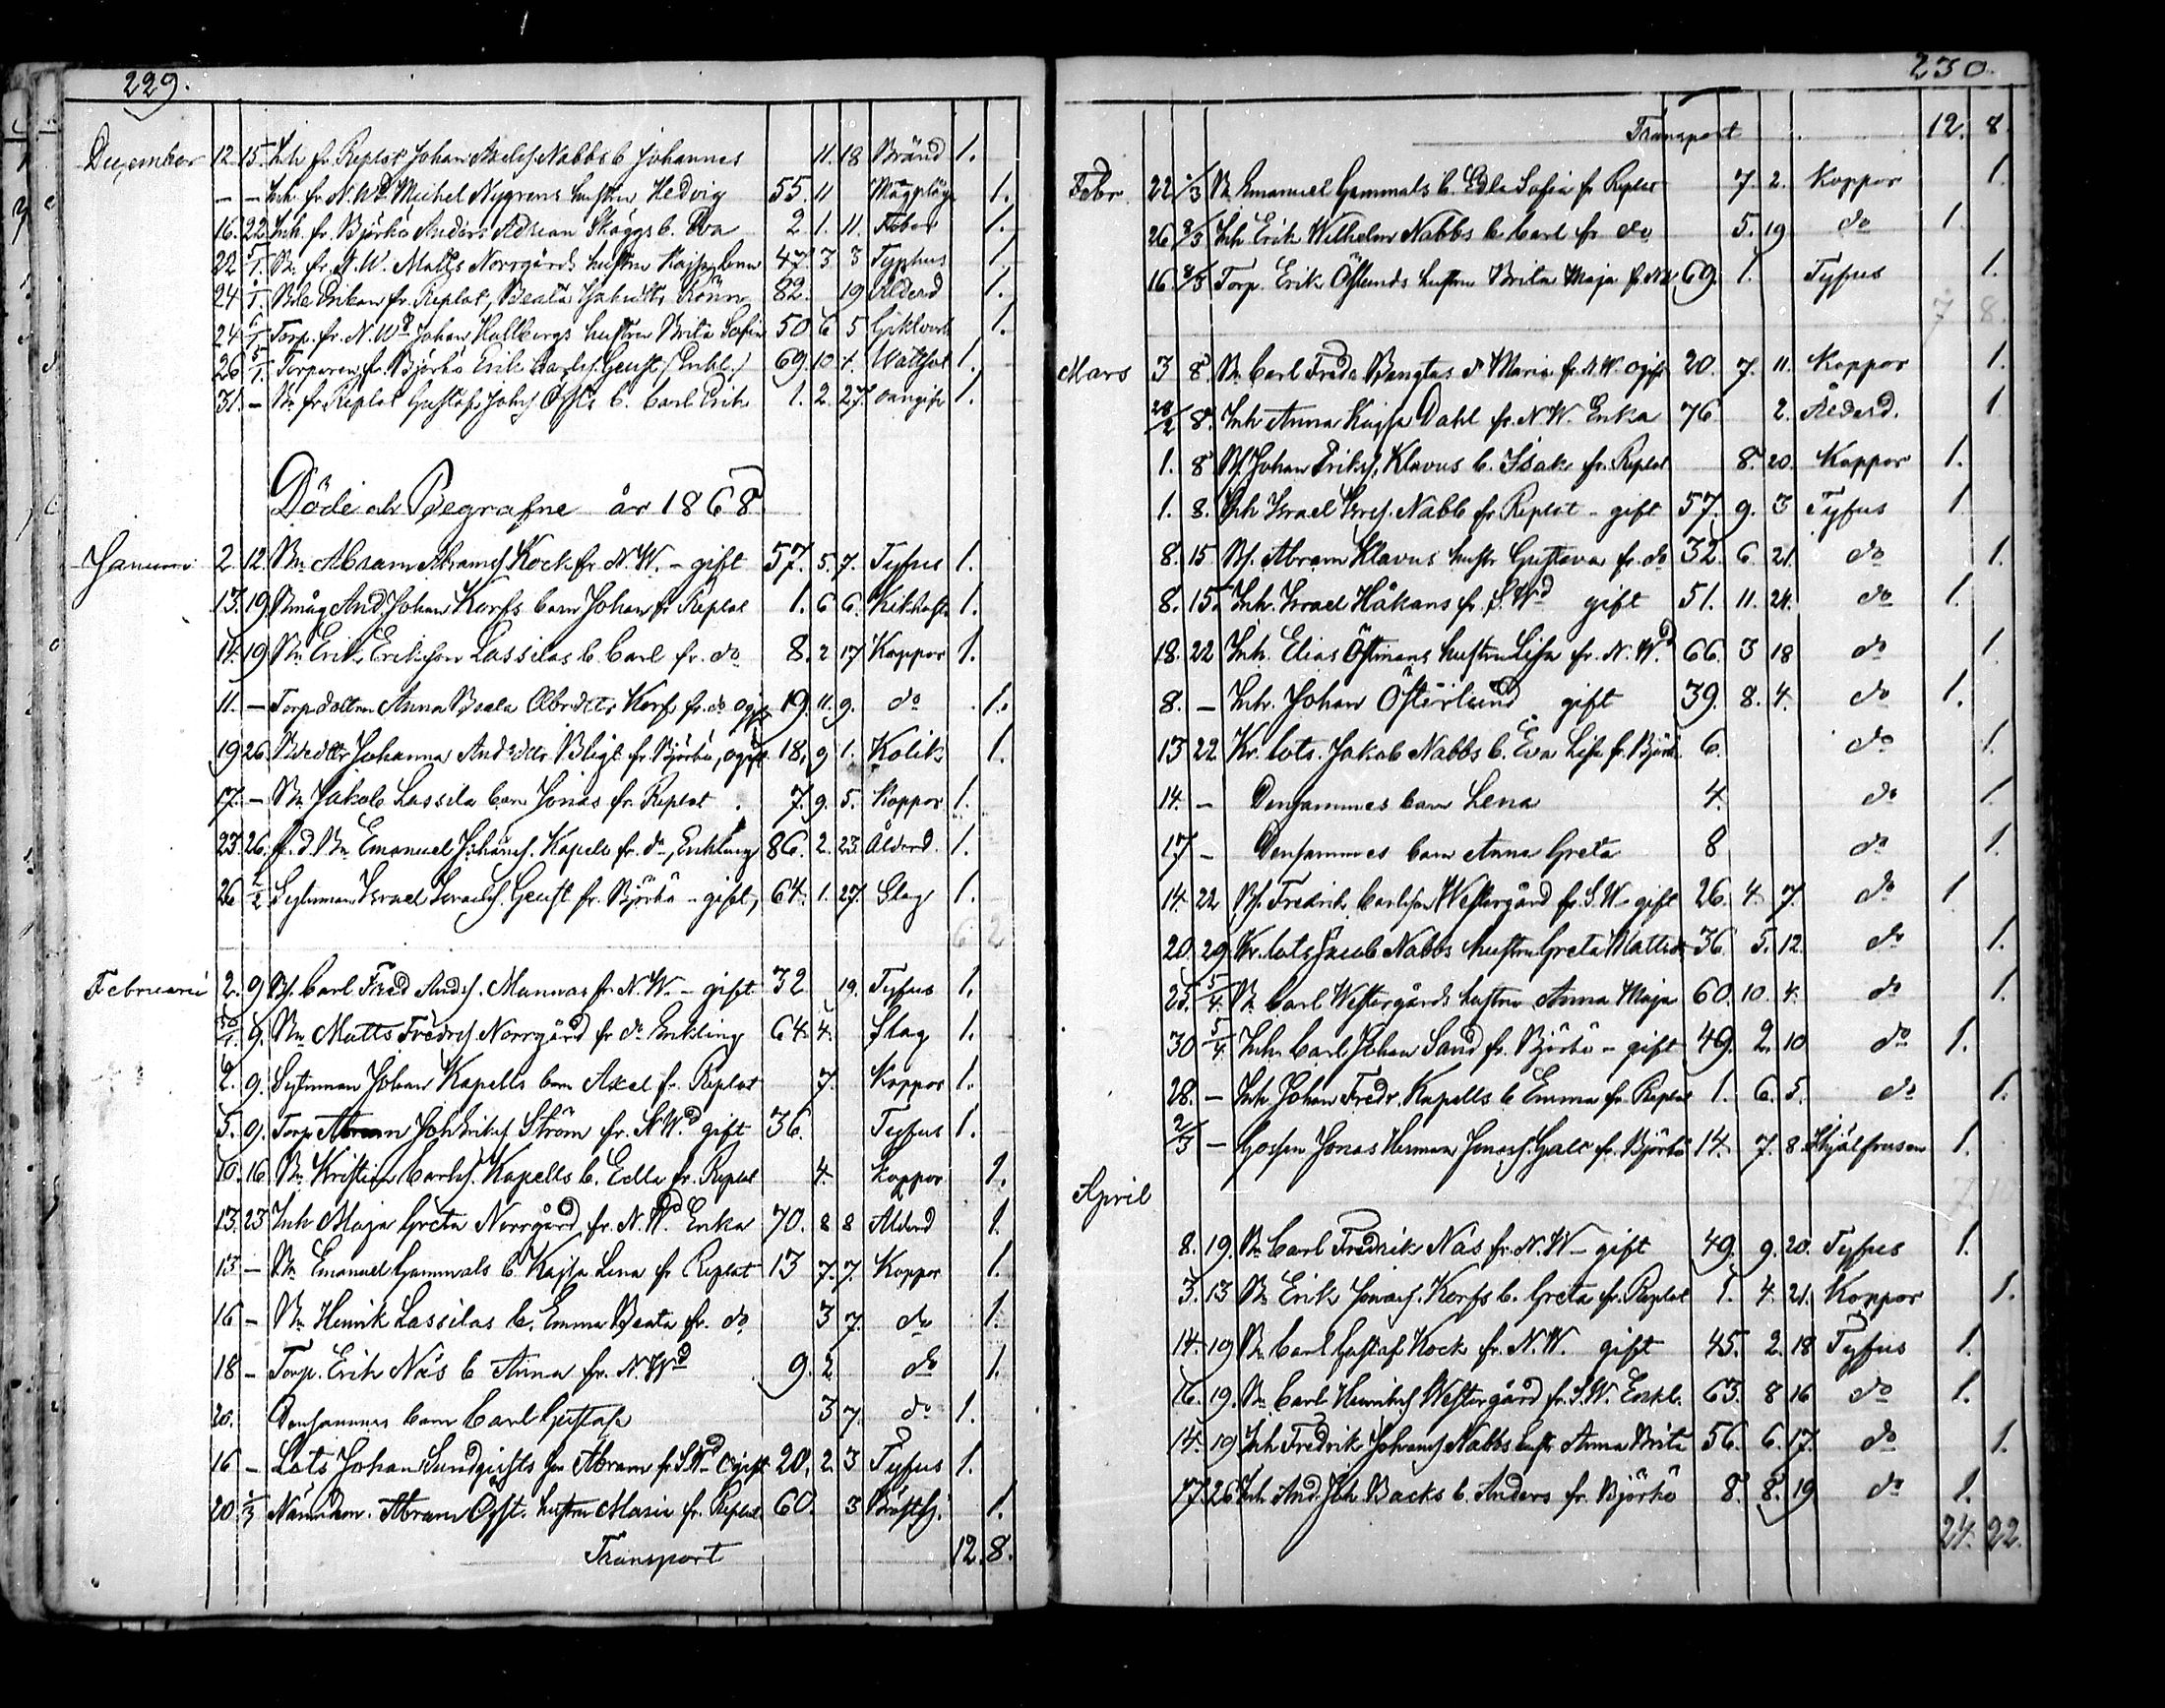 229.
December 12. 15. Inh. fr. Replot Johan Nabbs b. Johannes 11. 18 Bränd 1.
– – Inh. fr. N. Wd. Michel Nygrens hustru Hedvig 55. 11 1.
16. 22. Inh. fr. Björkö Anders Adrian Skäggs b. Eva 2 1. 11. Feber 1.
22 5/1. Bn. fr. N. W. Matts Norrgårds hustru Kajsa Lena 47. 3 3 Typhus 1.
24 fr. Replot, Beata Rönn 82. 19 Ålderd 1.
24 6/1 Torp. fr. N. Wd. Johan Hallbergs hustru Brita Sofia 50. 6 5 1.
26 5/1. Torparen fr. Björkö Erik Carls. Geust (Enkl.) 69. 10 1. Wattsot 1.
31. – Bn. fr. Replot Gustaf Johs. Östs b. Carl Erik 1. 2. 27. oangifv. 1.
Döde och Begrafne år 1868
Januari 2. 12. Bn. Abram Abrams. Kock fr. N. W. – gift 57. 5. 7. Tyfus 1.
13. 19. Bmåg And. Johan Korfs barn Johan fr. Replot 1. 6 6. Kikhosta 1.
14. 19. Bn. Erik Erikson Lassilas b. Carl fr. do 8. 2 17 Koppor 1.
11. – Torpdottren Anna Beata Korf fr. do ogift 19. 11. 9. do 1.
19 26 Bdottr Johanna And.dttr Bligt fr. Björkö, ogift 18. 9 1. Kolik 1.
17. – Bn. Jakob Lassila barn Jonas fr. Replot 7. 9. 5. Koppor 1.
23. 26. f. d. Bn. Emanuel Johans. Kapell fr. do, Enkling 86. 2. 23. Ålderd. 1.
26 2/2 Israel Israels. Geust fr. Björkö – gift, 64. 1. 27. Slag 1.
6 2
Februari 2. 9 Bs. Carl Fred. Ands. Munnas fr. N. W. – gift 32 19. Tyfus 1.
30/1. 9. Bn. Matts Fredrs. Norrgård fr. do Enkling 64. 4. Slag 1.
2. 9. Johan Kapells barn Axel fr. Replot 7. Koppor 1.
5. 9. Torp. Joh. Eriks. Ström fr. N. Wd. gift 36. Tyfus 1.
10. 16 Bn. Kristian Carls. Kapells b. Edla fr. Replot 4. Koppor 1.
13. 23 Inh. Maja Greta Norrgård fr. N. Wd. Enka 70. 8 8 Ålderd 1.
13 – Bn. Emanuel Gammals b. Kajsa Lena fr. Replot 13 7. 7. Koppor 1.
16 – Bn. Henrik Lassilas b. Emma Beata fr. do 3 7. do 1.
18 – Torp. Erik Näs b. Anna fr. N. Wd 9. 2 do 1.
20. Densammes barn Carl Gustaf 3 7. do 1.
16 – Lots Johan Sundqvists son Abram fr. S. Wd ogift 20. 2. 3 Tyfus 1.
20 1/3 Nämndem. Abram Öst. hustru Maria fr. Replot 60. 3 1.
Transport 12. 8.
230.
Transport 12. 8
Febr. 22 1/3 Bn. Emanuel Gammals b. Edla Sofia fr. Replot 7. 2. Koppor 1.
26 8/3 Inh. Erik Wilhelm Nabbs b. Carl fr. do 5. 19 do 1.
16. 8/3 Torp. Erik Östlunds hustru Brita Maja fr. N. W. 69. 1. Tyfus 1.
7 8.
Mars 3 8. Bn. Carl Fredr. Bengtas d. Maria fr. N. W. ogift 20. 7. 11. Koppor 1.
28/2 8. Inh. Anna Kajsa Dahl fr. N. W. Enka 76 2. Ålderd. 1
1. 8 Bs. Johan Eriks. Klavus b. Isak fr. Replot 8. 20. Koppor 1.
1. 8. Inh. Israel Isrs. Nabb fr. Replot – gift 57. 9. 3 Tyfus 1.
8. 15 Bs. Abram Klavus hustr. Gustava fr. do 32. 6 21. do 1.
8. 15. Inh. Israel Håkans fr. S. Wd gift 51. 11. 24. do 1.
18. 22 Inh. Elias Östmans hustru Lisa fr. N. Wd. 66. 3 18 do 1.
8. – Inh. Johan Österlund gift 39. 8. 4. do 1.
13 22. Kr. lots. Jakob Nabbs b. Eva Lisa fr. Björkö 6. do 1.
14. – Densammes barn Lena 4. do 1.
17 – Densammes barn Anna Greta 8 do 1.
14. 22 Bs. Fredrik Carlson Westergård fr. S. W – gift 26. 4. 7. do 1
20. 29. Kr. lots Jacob Nabbs hustru Greta Mattsdr 36. 5. 12. do 1.
25. 5/4. Bn. Carl Westergårds hustru Anna Maja 60. 10. 4. do 1.
30 5/4 Inh. Carl Johan Sand fr. Björkö – gift 49. 2. 10 do 1.
28. – Inh. Johan Fredr. Kapells b. Emma fr. Replot 1. 6. 5. do 1.
2/3 – Gossen Jonas Herman Jonass. Gale fr. Björkö 14. 7. 8. Ihjälfrusen 1.
April
8. 19. Bn. Carl Fredrik Näs fr. N. W – gift 49. 9. 20. Tyfus 1.
3. 13 Bn. Erik Jonass. Korfs b. Greta fr. Replot 1. 4. 21. Koppor 1.
14. 19 Bn. Carl Gustaf Kock fr. N. W. gift 45. 2. 18 Tyfus 1.
16. 19. Bn. Carl Henriks. Westergård fr. S. W. Enkl. 63. 8 16 do 1.
14. 19 Inh. Fredrik Johans. Nabbs hustr. Anna Brita 56. 6. 17. do 1.
17. 26 Inh. And. Joh. Backs b. Anders fr. Björkö 8. 8. 19 do 1.
24. 22.